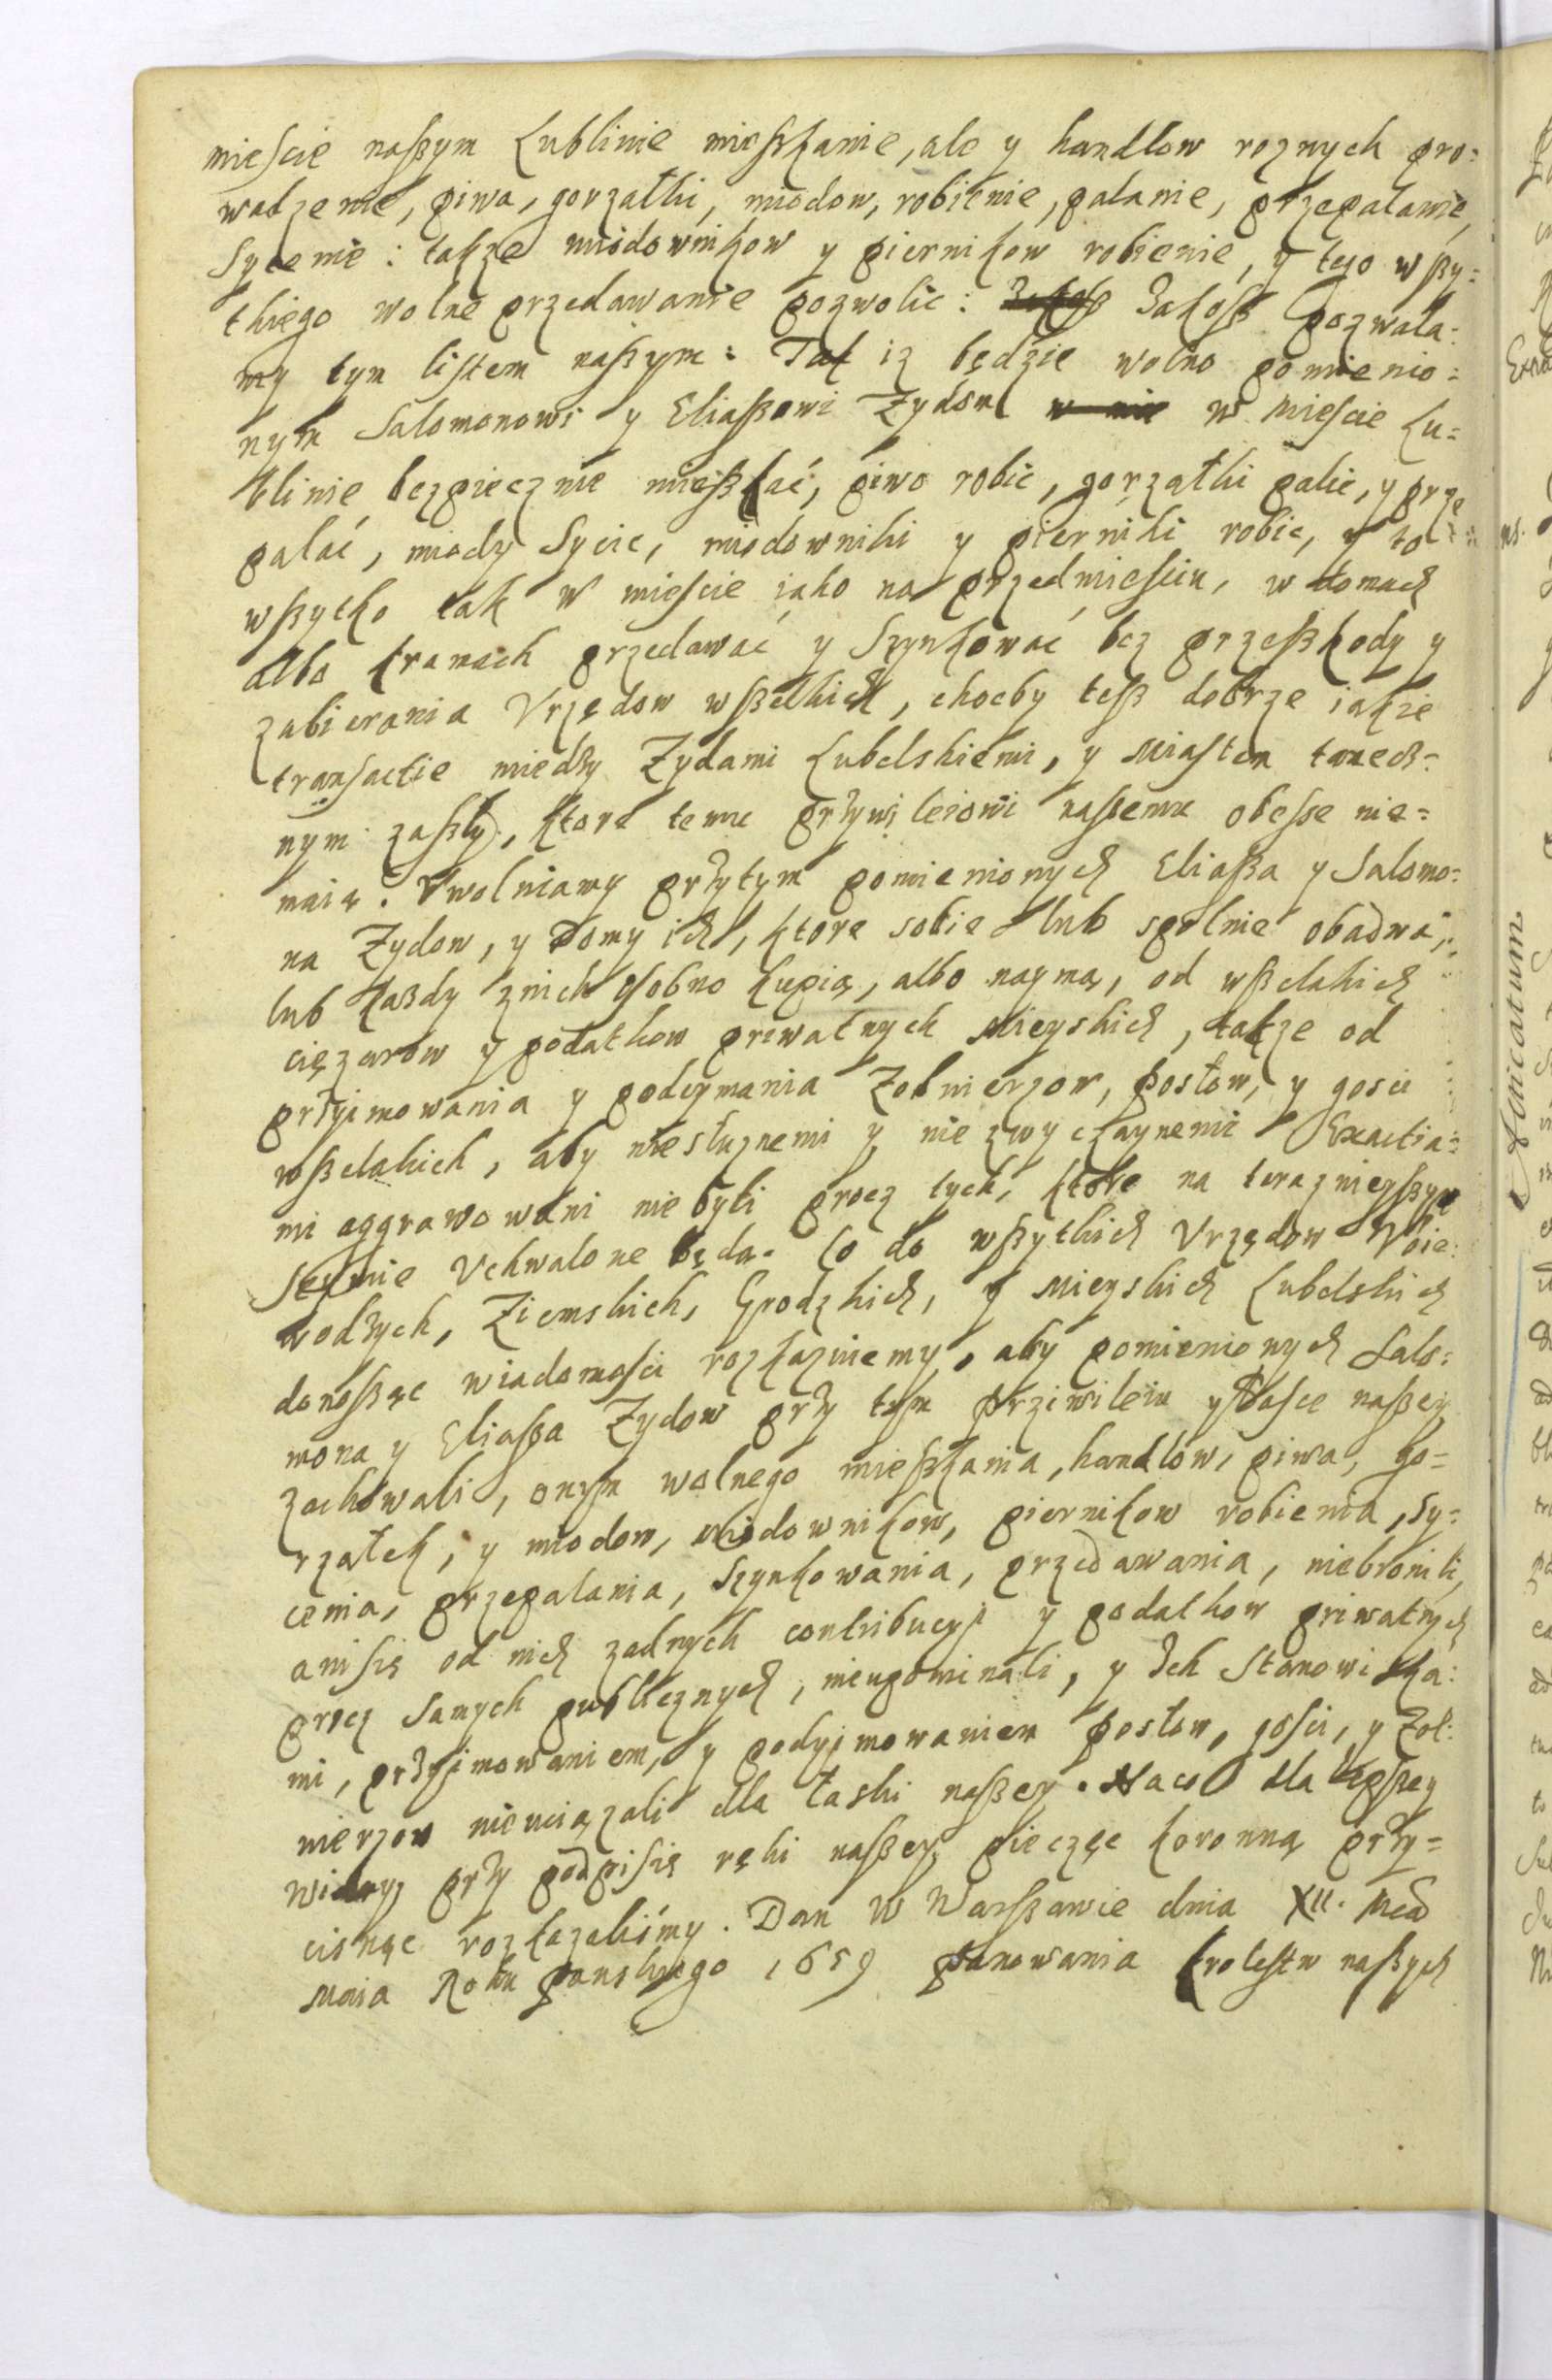 mieſcie naßym Lublinie mießkanie, ale y handlow roznych pro=
wadzenie, piwa, gorzałki, miodow, robienie, palanie, przepalanie,
Sycenie: takze miodownikow y piernikow robienie, y tego wßy=
tkiego wolne przedawanie pozwolic: Jakoß pozwala=
my tym liſtem naßym: Tak iz będzie wolno pomienio=
nym Salomonowi y Eliaßowi Zydom w Mieſcie Lu=
blinie bezpiecznie mießkać, piwo robic, gorzałki palic, y prze
palać, miody Sycic, miodowniki y pierniki robic, y to
wßytko tak w mieſcie iako na przedmieſciu, w domach
albo kramach przedawać y Szynkować bez przeßkody y
zabierania Vrzędow wßelkich, choćby teß dobrze iakie
tranſactie miedzy Zydami Lubelskiemi, y Miaſtem tamecz=
nym zaßły, ktore temu przywileiowi naßemu obeſse nie=
maią. Vwolniamy przytym pomienionych Eliaßa y Salomo=
na Zydow, y Domy ich, ktore sobie lub spolnie obadwa,
lub każdy znich oſobno kupią, albo naymą, od wßelakich
ciężarow y podatkow prewatnych Mieyskich, także od
przyimowania y podeymania Zołnierzow, posłow, y gosci
wßelakich, aby niesłuznemi y niezwyczaynemi Exactia=
mi aggrawowani nie byli procz tych, ktore na teraznieyßym
Seymie Vchwalone będą. Co do wßytkich Vrzędow Woie=
wodzych, Ziemskich, Grodzkich, y Mieyskich Lubelskich
donoßąc wiadomości rozkazuiemy, aby pomienionych Salo=
mona y Eliaßa Zydow przy tym przywileiu y łasce naßey
zachowali, onym wolnego mießkania, handlow, piwa, go=
rzałek, y miodow, miodownikow, piernikow robienia, sy=
cenia, przepalania, Szynkowania, przedawania, niebronili,
aniſię od nich zadnych contribucyi y podatkow priwatnych
procz samych publicznych, nieupominali, y Ich Stanowiska=
mi, przyimowaniem, y podyimowaniem posłow, gosci, y Zoł=
nierzow nieuciązali dla łaski naßey. Naco dla lepßey
wiary, przy podpiſię ręki naßey, pieczęc koronną przy=
cisnąc rozkazaliśmy. Dan w Warßawie dnia XII. Mca
Maia Roku panskiego 1659 panowania kroleſtw naßych